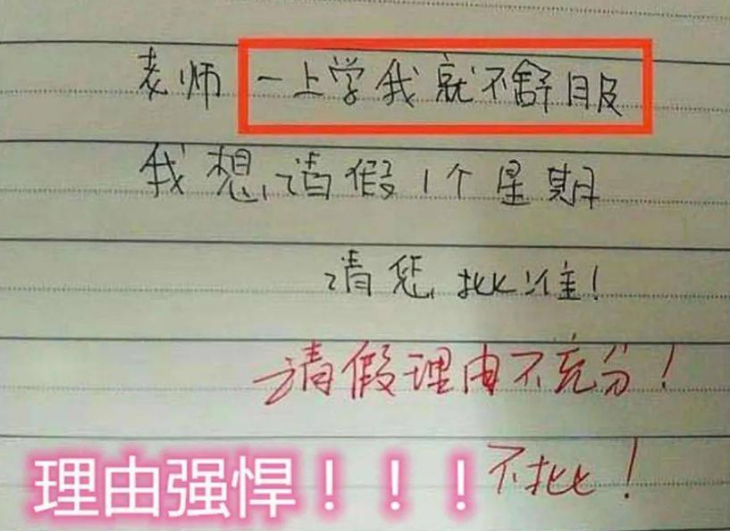 老师 一上学我就不舒服
我想请假1个星期
请您批准！
请假理由不充分！
不批！
理由强悍！！！